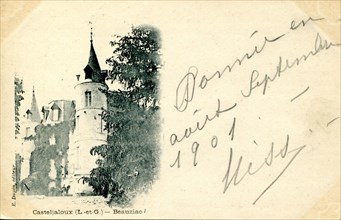 Donnée en
août Septembre
1901
Miss.
Casteljaloux (L.-et-G.) — Beauziac